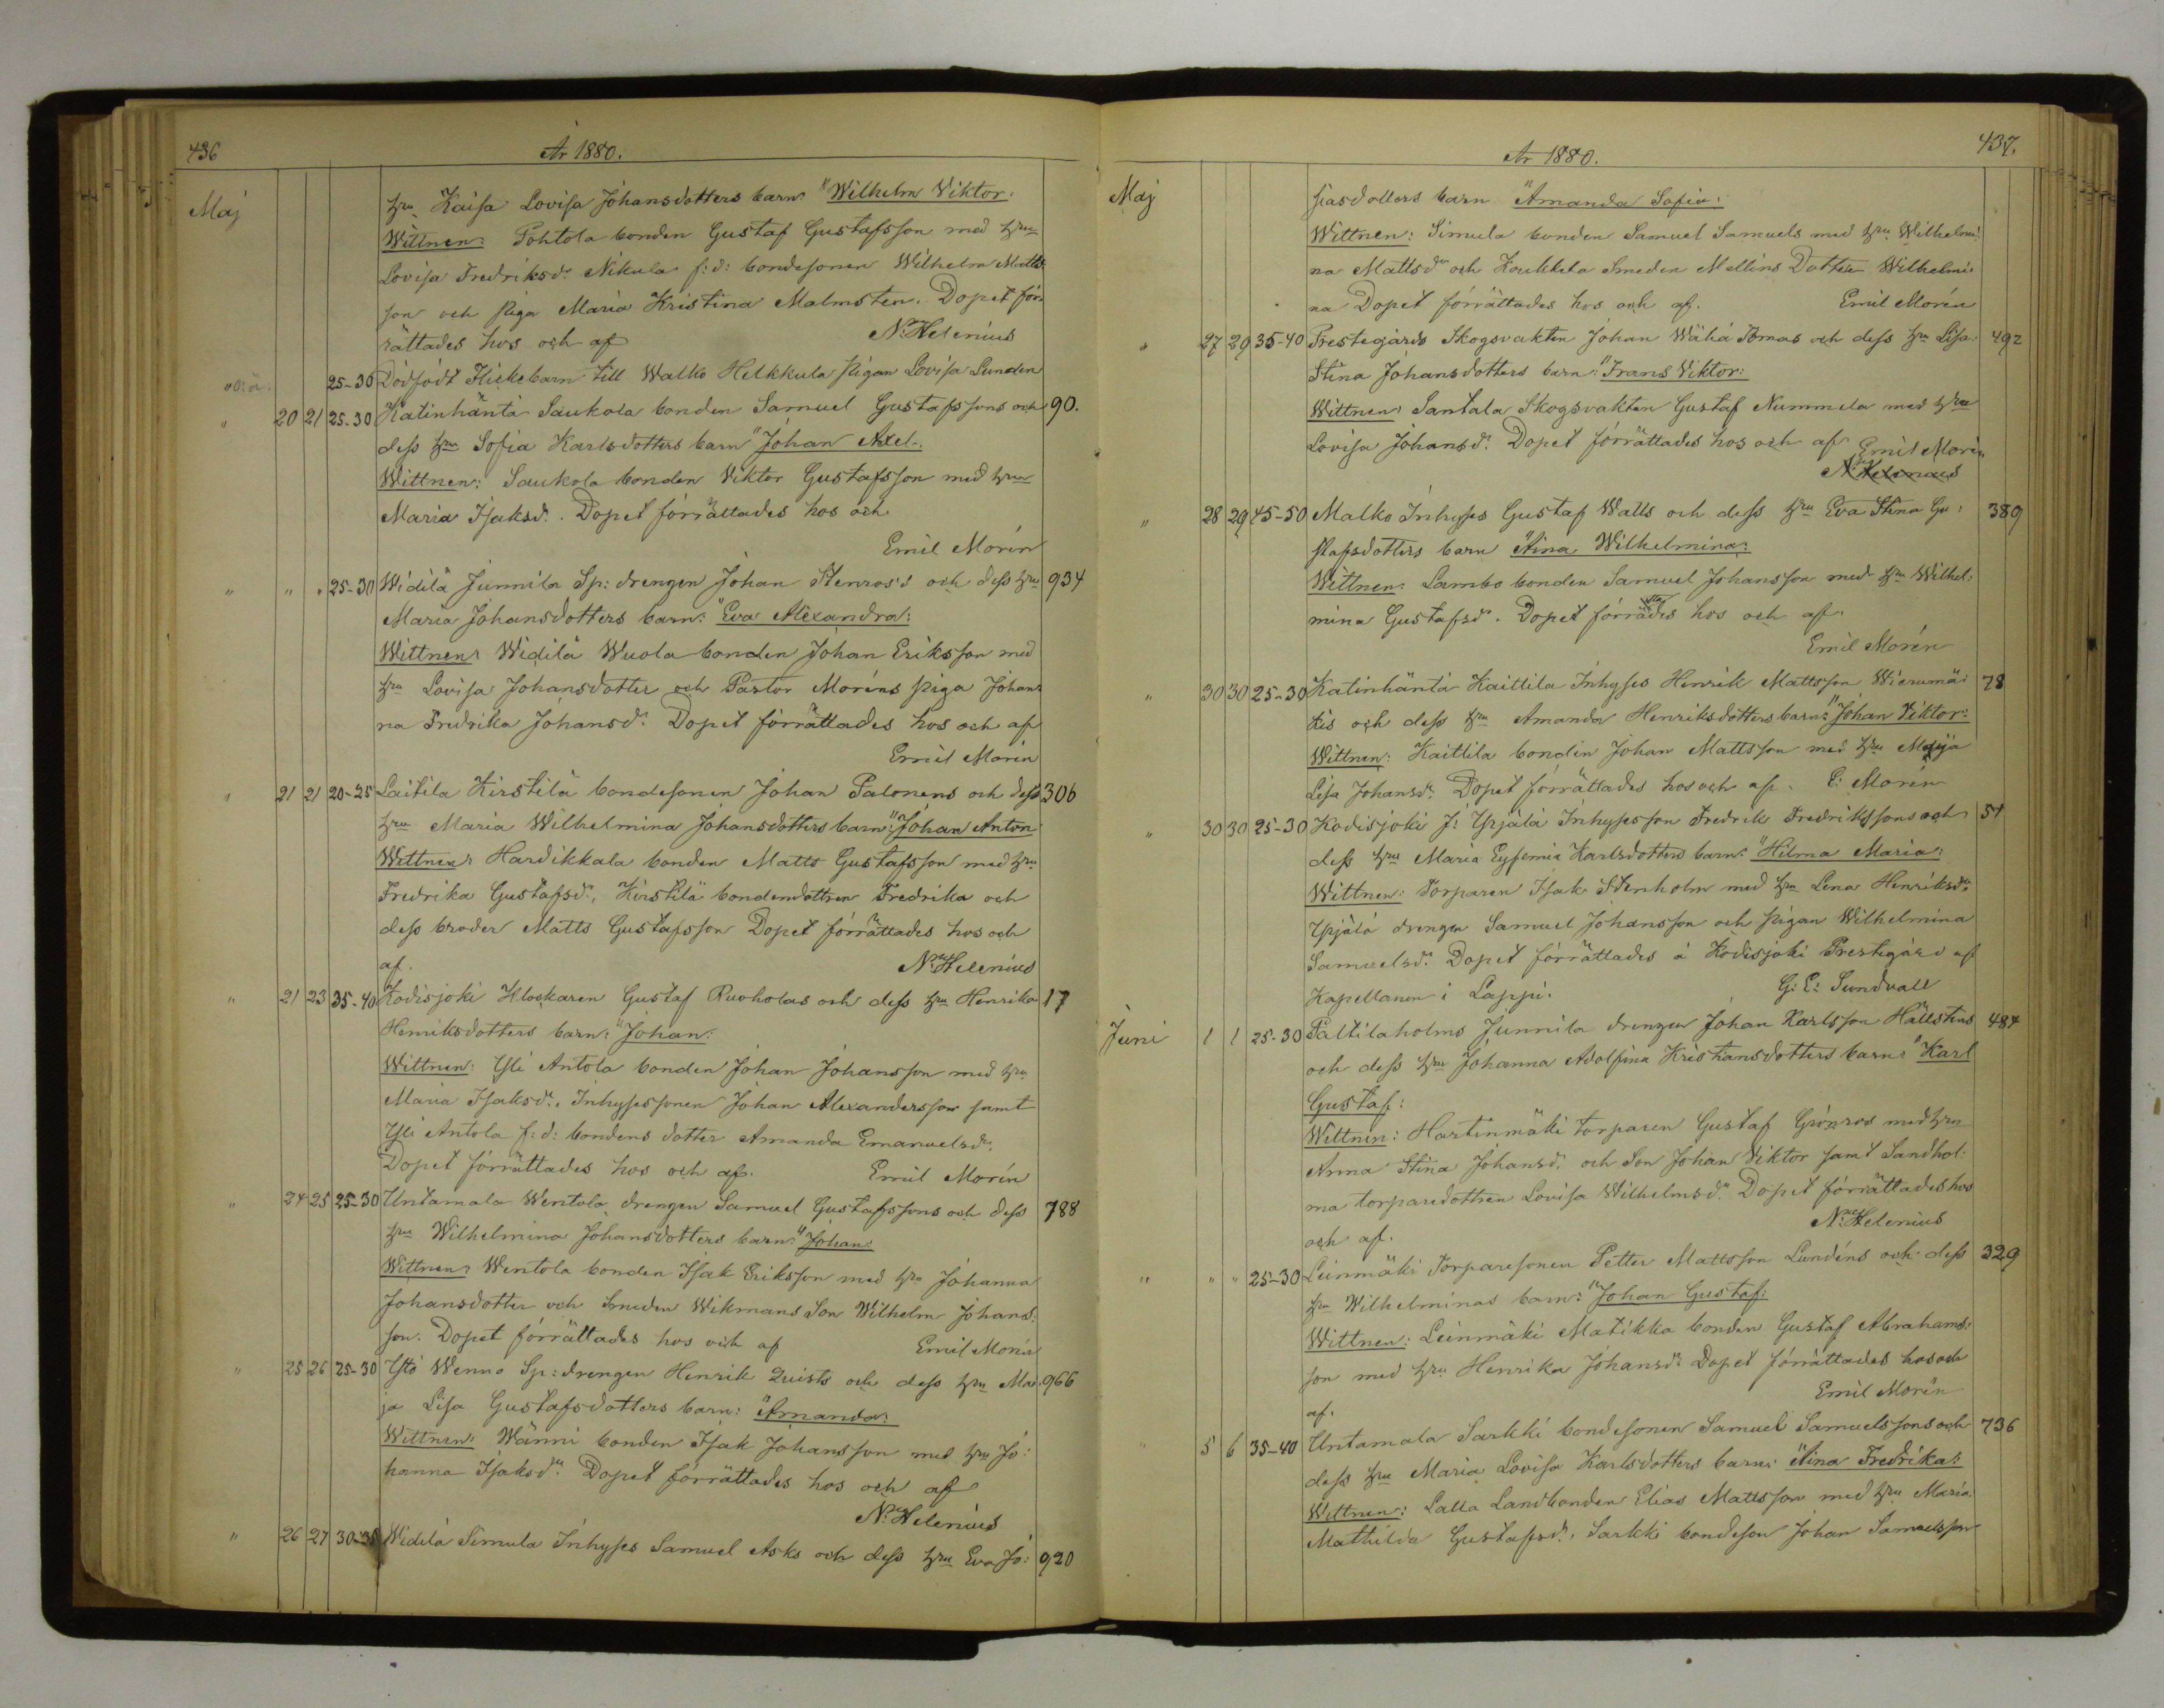 436
År 1880.
Maj
hru Kaisa Lovisa Johansdotters barn "Wilhelm Viktor:
Wittnen: Pohtola bonden Gustaf Gustafsson med hru
Lovisa Fredriksdr Nikula f:d: bondesonen Wilhelm Matts
son och Piga Maria Kristina Malmsten. Dopet för:
rättades hos och af
N: Helenius
25-30 Dödfödt Flickebarn till Walko Helkkula Pigan Lovisa Lunden
" 20 21 25-30 Katinhäntä Saukola bonden Samuel Gustafssons och 90.
dess hru Sofia Karlsdotters barn "Johan Axel:
Wittnen: Saukola bonden Viktor Gustafsson med hru
Maria Isaksdr. Dopet förrättades hos och
Emil Morén
" " " 25-30 Widilä Junnila Sp: drengen Johan Stenros's och dess hru 934
Maria Johansdotters barn: "Eva Alexandra:
Wittnen: Widilä Wuola bonden Johan Eriksson med
hru Lovisa Johansdotter och Pastor Moréns piga Johan:
na Fredrika Johansdr. Dopet förrättades hos och af
Emil Morén
" 21 21 20-25 Laitila Kirstilä bondesonen Johan Palonens och dess 306
hru Maria Wilhelmina Johansdotters barn: "Johan Anton
Wittnen: Hardikkala bonden Matts Gustafsson med hru
Fredrika Gustafsdr, Kirstilä bondendottren Fredrika och
dess broder Matts Gustafsson Dopet förrättades hos och
af.
N: Helenius
" 21 23 35-40 Kodisjoki Klockaren Gustaf Ruoholas och dess hru Henrika 17
Henriksdotters barn: "Johan:
Wittnen: Yli Antola bonden Johan Johansson med hru
Maria Isaksdr. Inhysessonen Johan Alexandersson samt
Yli Antola f:d: bondens dotter Amanda Emanuelsdr.
Dopet förrättades hos och af.
Emil Morén
" 24 25 25-30 Untamala Wentola drengen Samuel Gustafssons och dess 788
hru Wilhelmina Johansdotters barn: "Johan:
Wittnen: Wentola bonden Isak Eriksson med hru Johanna
Johansdotter och Smeden Wikmans Son Wilhelm Johans:
son. Dopet förrättades hos och af
Emil Morén
" 25 26 25-30 Ytö Wenno Sp: drengen Henrik Quists och dess hru Ma: 966
ja Lisa Gustafsdotters barn: "Amanda:
Wittnen: Wänni bonden Isak Johansson med hru Jo:
hanna Isaksdr. Dopet förrättades hos och af
N: Helenius
" 26 27 30-35 Widilä Simula Inhyses Samuel Asks och dess hru Eva Jo: 920
437.
År 1880.
Maj
siasdotters barn "Amanda Sofia:
Wittnen: Simula bonden Samuel Samuels med hru Wilhelmi:
na Mattsdr och Koukkela Smeden Mellins Dotter Wilhelmi:
na Dopet förrättades hos och af.
Emil Morén
" 27 29 35-40 Prestegårds Skogsvakten Johan Wähä Tomas och dess hru Lisa 492
Stina Johansdotters barn: "Frans Viktor:
Wittnen: Santala Skogsvakten Gustaf Nummela med hru
Lovisa Johansdr. Dopet förrättades hos och af
Emil Morén
N: Helenius
" 28 29 45-50 Malko Inhyses Gustaf Walls och dess hru Eva Stina Gu: 389
stafsdotters barn "Aina Wilhelmina:
Wittnen: Lambo bonden Samuel Johansson med hru Wilhel:
mina Gustafsdr. Dopet förrädes hos och af.
Emil Morén
" 30 30 25-30 Katinhäntä Kaittila Inhyses Henrik Mattsson Wierumä: 78
kis och dess hru Amanda Henriksdotters barn: "Johan Viktor:
Wittnen: Kaittila bonden Johan Mattsson med hru Maja
Lisa Johansdr. Dopet förrättades hos och af. E: Morén
" 30 30 25-30 Kodisjoki J: Ypjälä Inhysesson Fredrik Fredrikssons och 54
dess hru Maria Eufemia Karlsdotters barn: "Hilma Maria:
Wittnen: Torparen Isak Stenholm med hru Lena Henriksdr.
Ypjälä drengen Samuel Johansson och Pigan Wilhelmina
Samuelsdr. Dopet förrättades å Kodisjoki Prestegård af
Kapellanen i Lappi.
G: E: Sundvall
Juni 1 1 25-30 Paltilaholms Junnila drengen Johan Karlsson Hällstens 484
och dess hru Johanna Adolfina Kristiansdotters barn: "Karl
Gustaf:
Wittnen: Hartinmäki torparen Gustaf Grönros med hru
Anna Stina Johansdr. och Son Johan Viktor samt Sandhol:
ma torparedottren Lovisa Wilhelmsdr. Dopet förrättades hos
och af.
N: Helenius
" " " 25-30 Leinmäki Torparesonen Petter Mattsson Lundéns och dess 329
hru Wilhelminas barn: "Johan Gustaf:
Wittnen: Leinmäki Matikka bonden Gustaf Abrahams:
son med hru Henrika Johansdr Dopet förrättades hos och
af.
Emil Morén
" 5 6 35-40 Untamala Sarkki bondesonen Samuel Samuelssons och 736
dess hru Maria Lovisa Karlsdotters barn: "Aina Fredrika:
Wittnen: Lalla Landbonden Elias Mattsson med hru Maria
Mathilda Gustafsdr. Sarkki bondeson Johan Samuelsson